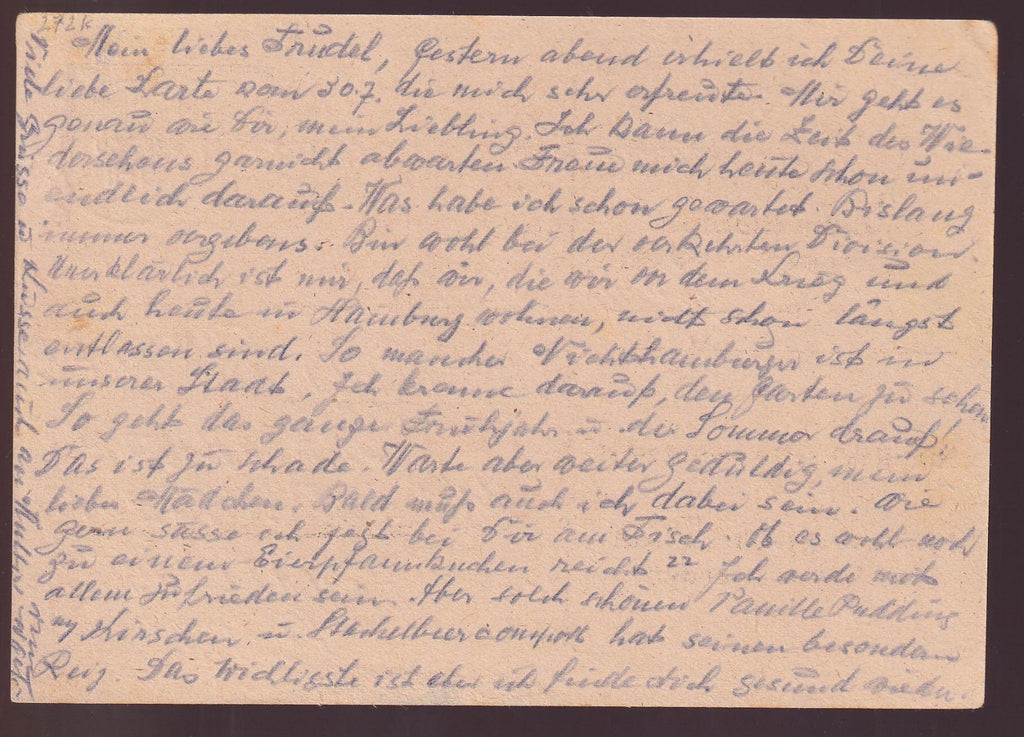 272k
Mein liebes Trudel, gestern abend erhielt ich Deine
liebe Karte vom 30.7. die mich sehr erfreute. Mir geht es
genau wie Dir, mein Liebling. Ich kann die Zeit des Wie-
dersehens garnicht abwarten. Freue mich heute schon un-
endlich darauf. Was habe ich schon gewartet. Bislang
immer vergebens. Bin wohl bei der verkehrten Division.
Unerklärlich ist mir, daß wir, die wir vor dem Krieg und
auch heute in Hamburg wohnen, nicht schon längst
entlassen sind. So mancher Nichthamburger ist in
unserer Stadt. Ich brenne darauf, den Garten zu sehen.
So geht das ganze Frühjahr u. der Sommer drauf!
Das ist zu schade. Warte aber weiter geduldig, mein
liebes Mädchen. Bald muß auch ich dabei sein. Wie
gern sässe ich jetzt bei Dir am Tisch. Ob es wohl noch
zu einem Eierpfannkuchen reicht?? Ich werde mit
allem zufrieden sein. Aber solch schönen Vanille Pudding
m/ Kirschen u. Stachelbeercompott hat seinen besondern
Reiz. Das Wichtigste ist aber ich finde dich gesund wieder.
Viele Grüsse u Küsse auch an Mutter